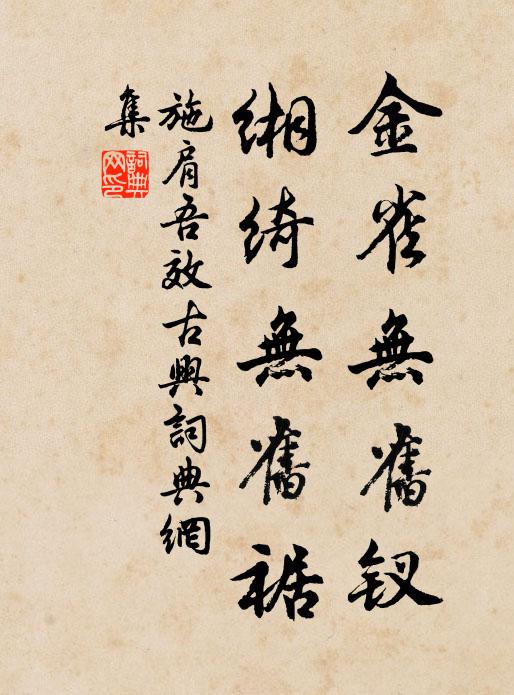 金雀無舊钗
緗綺無舊裾
施肩吾效古興詞典網
集
詞典
网印